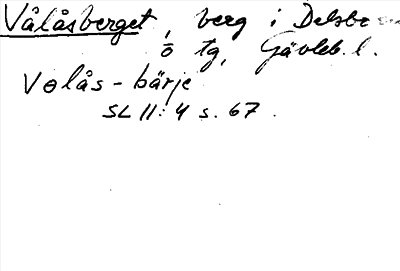 Vålåsberget, berg i Delsbo
ö tg, Gävleb. l.
Vɵlås - bärje
SL 11:4 s. 67.